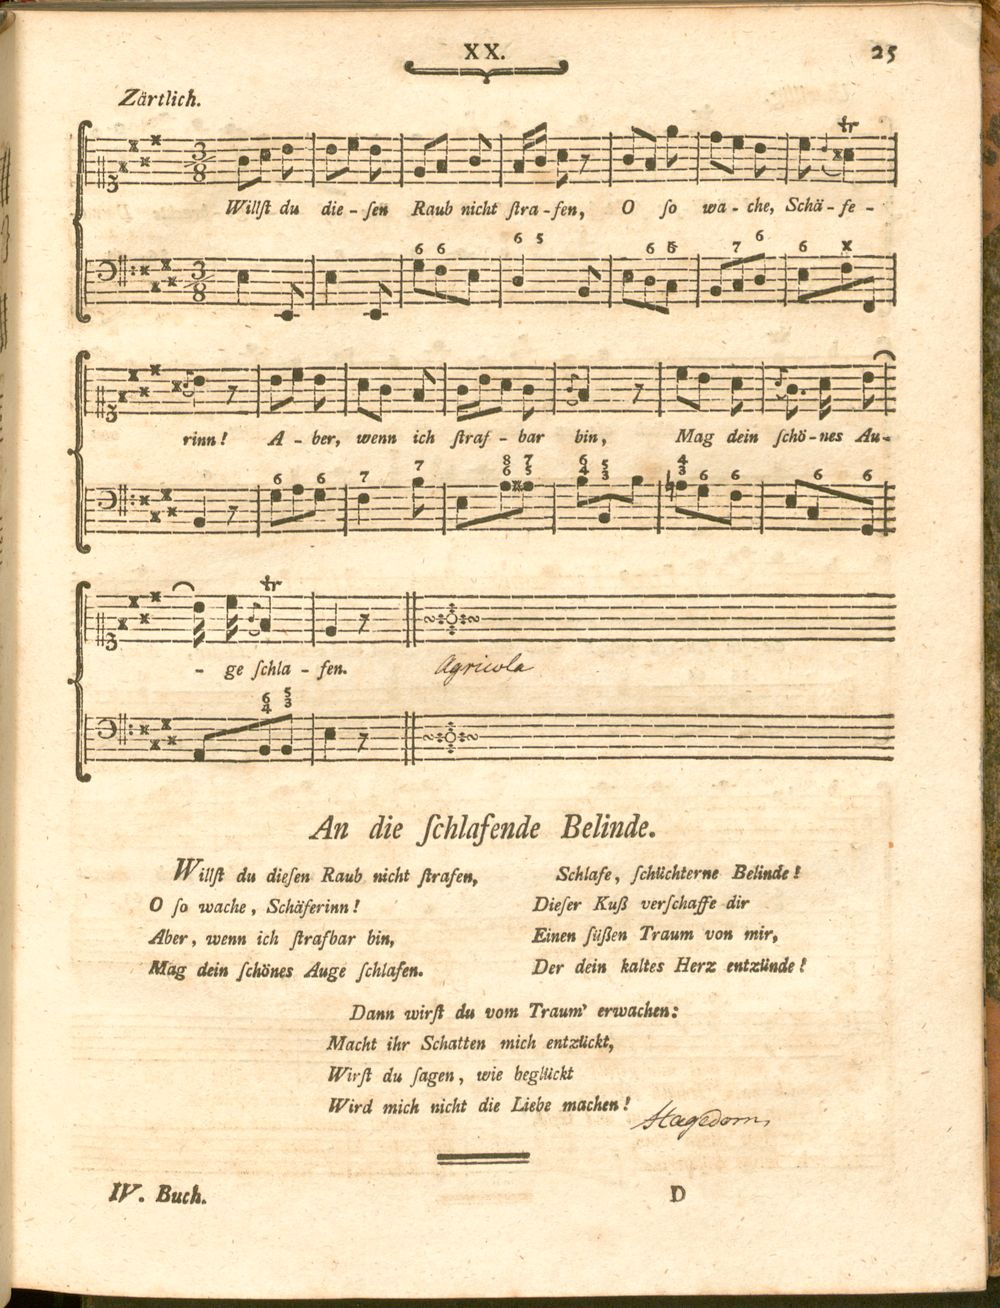 XX.
25
Zärtlich.
Willſt du die - ſen Raub nicht ſtra - fen, O ſo wa - che, Schä - fe -
6 6 6 5 6 6 7 6 6 x
rinn! A - ber, wenn ich ſtraf - bar bin, Mag dein ſchö - nes Au -
8 7 6 5 4
6 6 7 7 6 5 4 3 3 6 6 6 6
- ge ſchla - fen. Agricola
6 5
4 3
An die ſchlafende Belinde.
Willſt du dieſen Raub nicht ſtrafen,
O ſo wache, Schäferinn!
Aber, wenn ich ſtrafbar bin,
Mag dein ſchönes Auge ſchlafen.
Schlafe, ſchüchterne Belinde!
Dieſer Kuß verſchaffe dir
Einen ſüßen Traum von mir,
Der dein kaltes Herz entzünde!
Dann wirſt du vom Traum' erwachen:
Macht ihr Schatten mich entzückt,
Wirſt du ſagen, wie beglückt
Wird mich nicht die Liebe machen!
Hagedorn
IV. Buch.
D